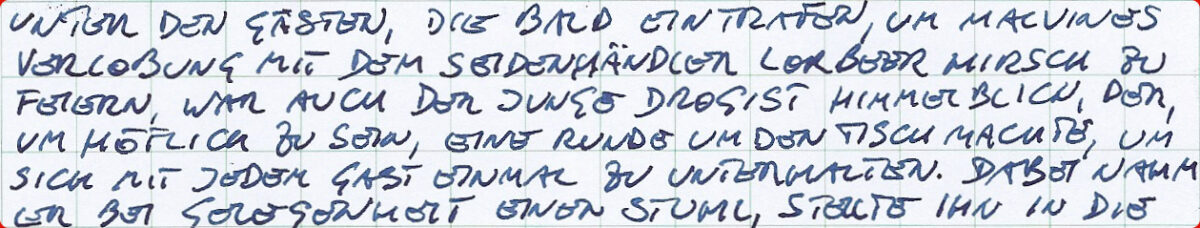 UNTER DEN GÄSTEN, DIE BALD EINTRAFEN, UM MALVINES
VERLOBUNG MIT DEM SEIDENHÄNDLER LORBEER MIRSCH ZU
FEIERN, WAR AUCH DER JUNGE DROGIST HIMMERBLICH, DER,
UM HÖFLICH ZU SEIN, EINE RUNDE UM DEN TISCH MACHTE, UM
SICH MIT JEDEM GAST EINMAL ZU UNTERHALTEN. DABEI NAHM
ER BEI GELEGENHEIT EINEN STUHL, STELLTE IHN IN DIE